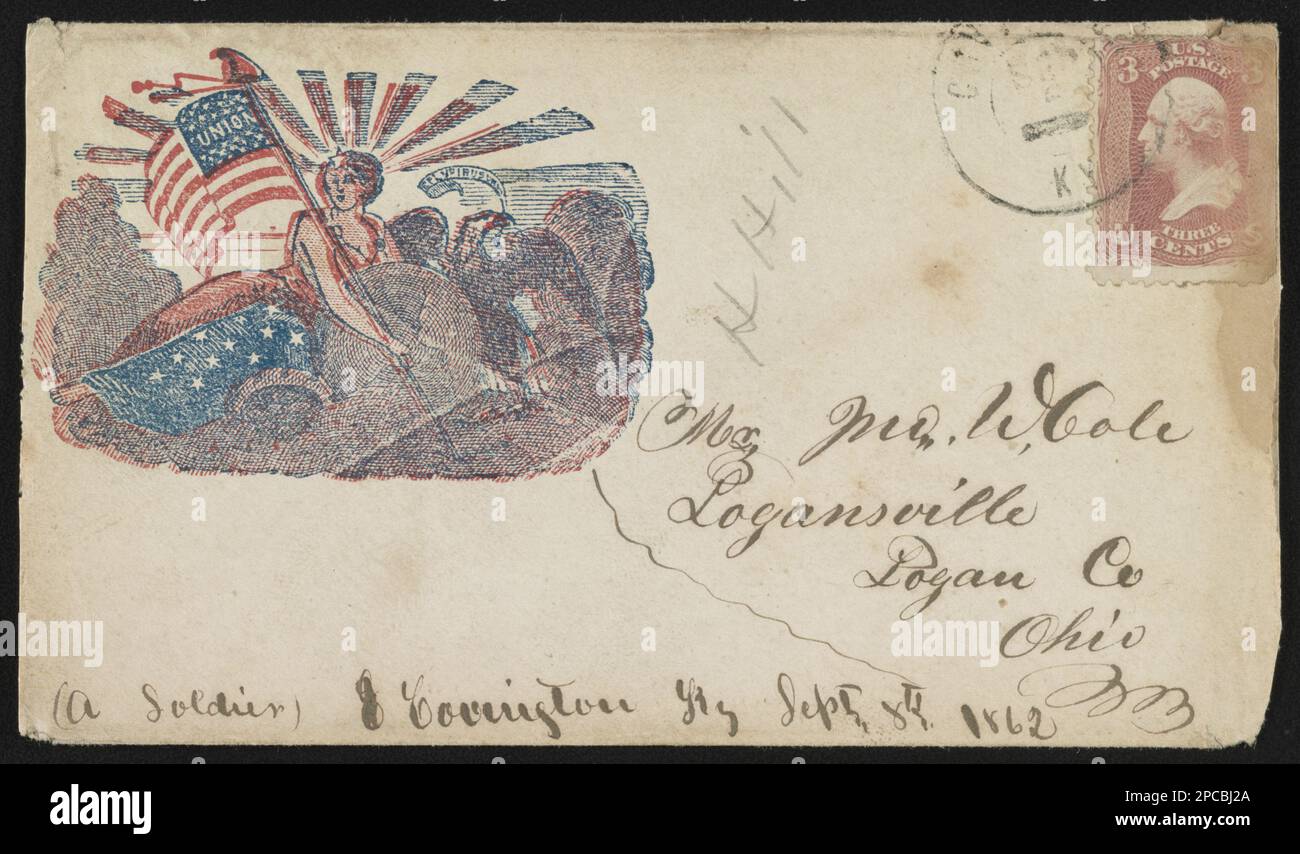 UNION
U.S.
POSTAGE
3 3
THREE
3 CENTS S
KY
H Hill
Mr Jno. W. Cole
Logansville
Logan Co
Ohio
(A Soldier) Covington Ky Sept, 8th, 1862
alamy
Image ID: 2PCBJ2A
www.alamy.com